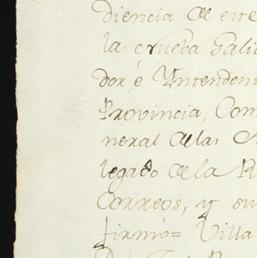 diencia de este
la crueba Gali
dor, é Yntenden
Provincia, Com
neral de las
legado de la R
Correos, y su
firmó= Villa